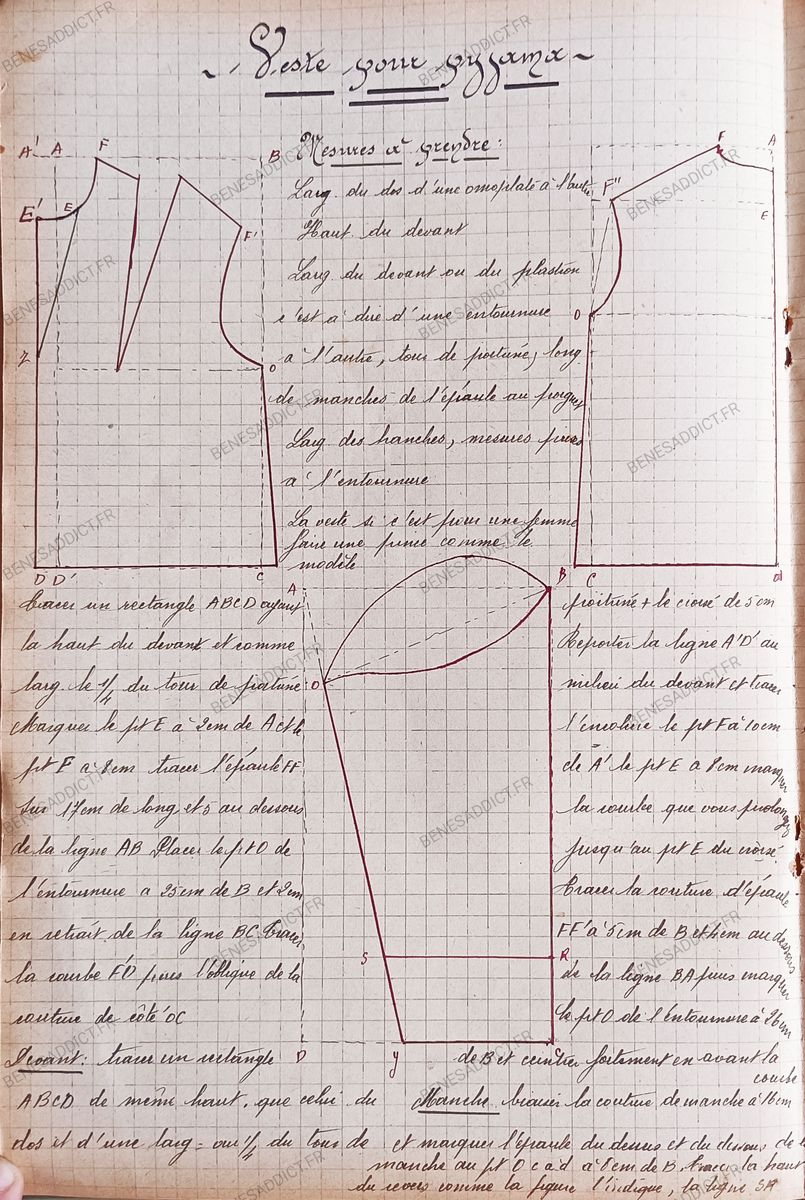 Veste pour pyjama
Mesures à prendre :
Larg du dos d'une omoplate à l'autre
Haut du devant
Larg du devant ou du plastron
c'est à dire d'une entournure
à l'autre, tour de poitrine, long
de manches de l'épaule au poignet
Larg des hanches, mesures prises
à l'entournure
La veste si c'est pour une femme
faire une pince comme le
modèle
A' A F B
E' E F'
Z O
D D' C
F A
F" E
O
B C d
A
O
S R
D Y
Tracer un rectangle ABCD ayant
la haut du devant et comme
larg. le 1/4 du tour de poitrine
Marquer le pt E à 2cm de A et le
pt F à 8cm tracer l'épaule FF
sur 17cm de long et 5 au dessous
de la ligne AB Placer le pt O de
l'entournure à 25cm de B et 2cm
en retrait de la ligne BC. Tracer
la courbe F'O puis l'oblique de la
couture de côté OC
Devant : tracer un rectangle
ABCD de même haut. que celui du
dos et d'une larg = au 1/4 du tour de
poitrine + le croisé de 5cm
Reporter la ligne A'D' au
milieu du devant et tracer
l'encolure le pt F à 10cm
de A' le pt E à 8cm marquer
la courbe que vous prolongez
jusqu'au pt E du croisé
Tracer la couture d'épaule
FF' à 5cm de B et 4cm au dessous
de la ligne BA puis marquer
le pt O de l'entournure à 26cm
de B et cintrer fortement en avant la
courbe
Manche tracer la couture de manche à 16cm
et marquer l'épaule du dessus et du dessous de la
manche au pt O c à d à 8cm de B. Tracer la haut
du revers comme la figure l'indique, la ligne SR
BENESADDICT.FR